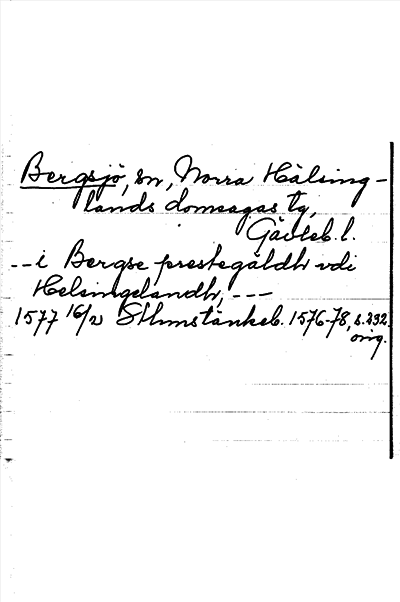 Bergsjö, sn, Norra Hälsing-
lands domsagas tg,
Gävleb. l.
-- i Bergse prestegäldh vdi
Helsingelandh, ---
1577 16/2 Sthmstänkeb. 1576-78, s. 232.
orig.